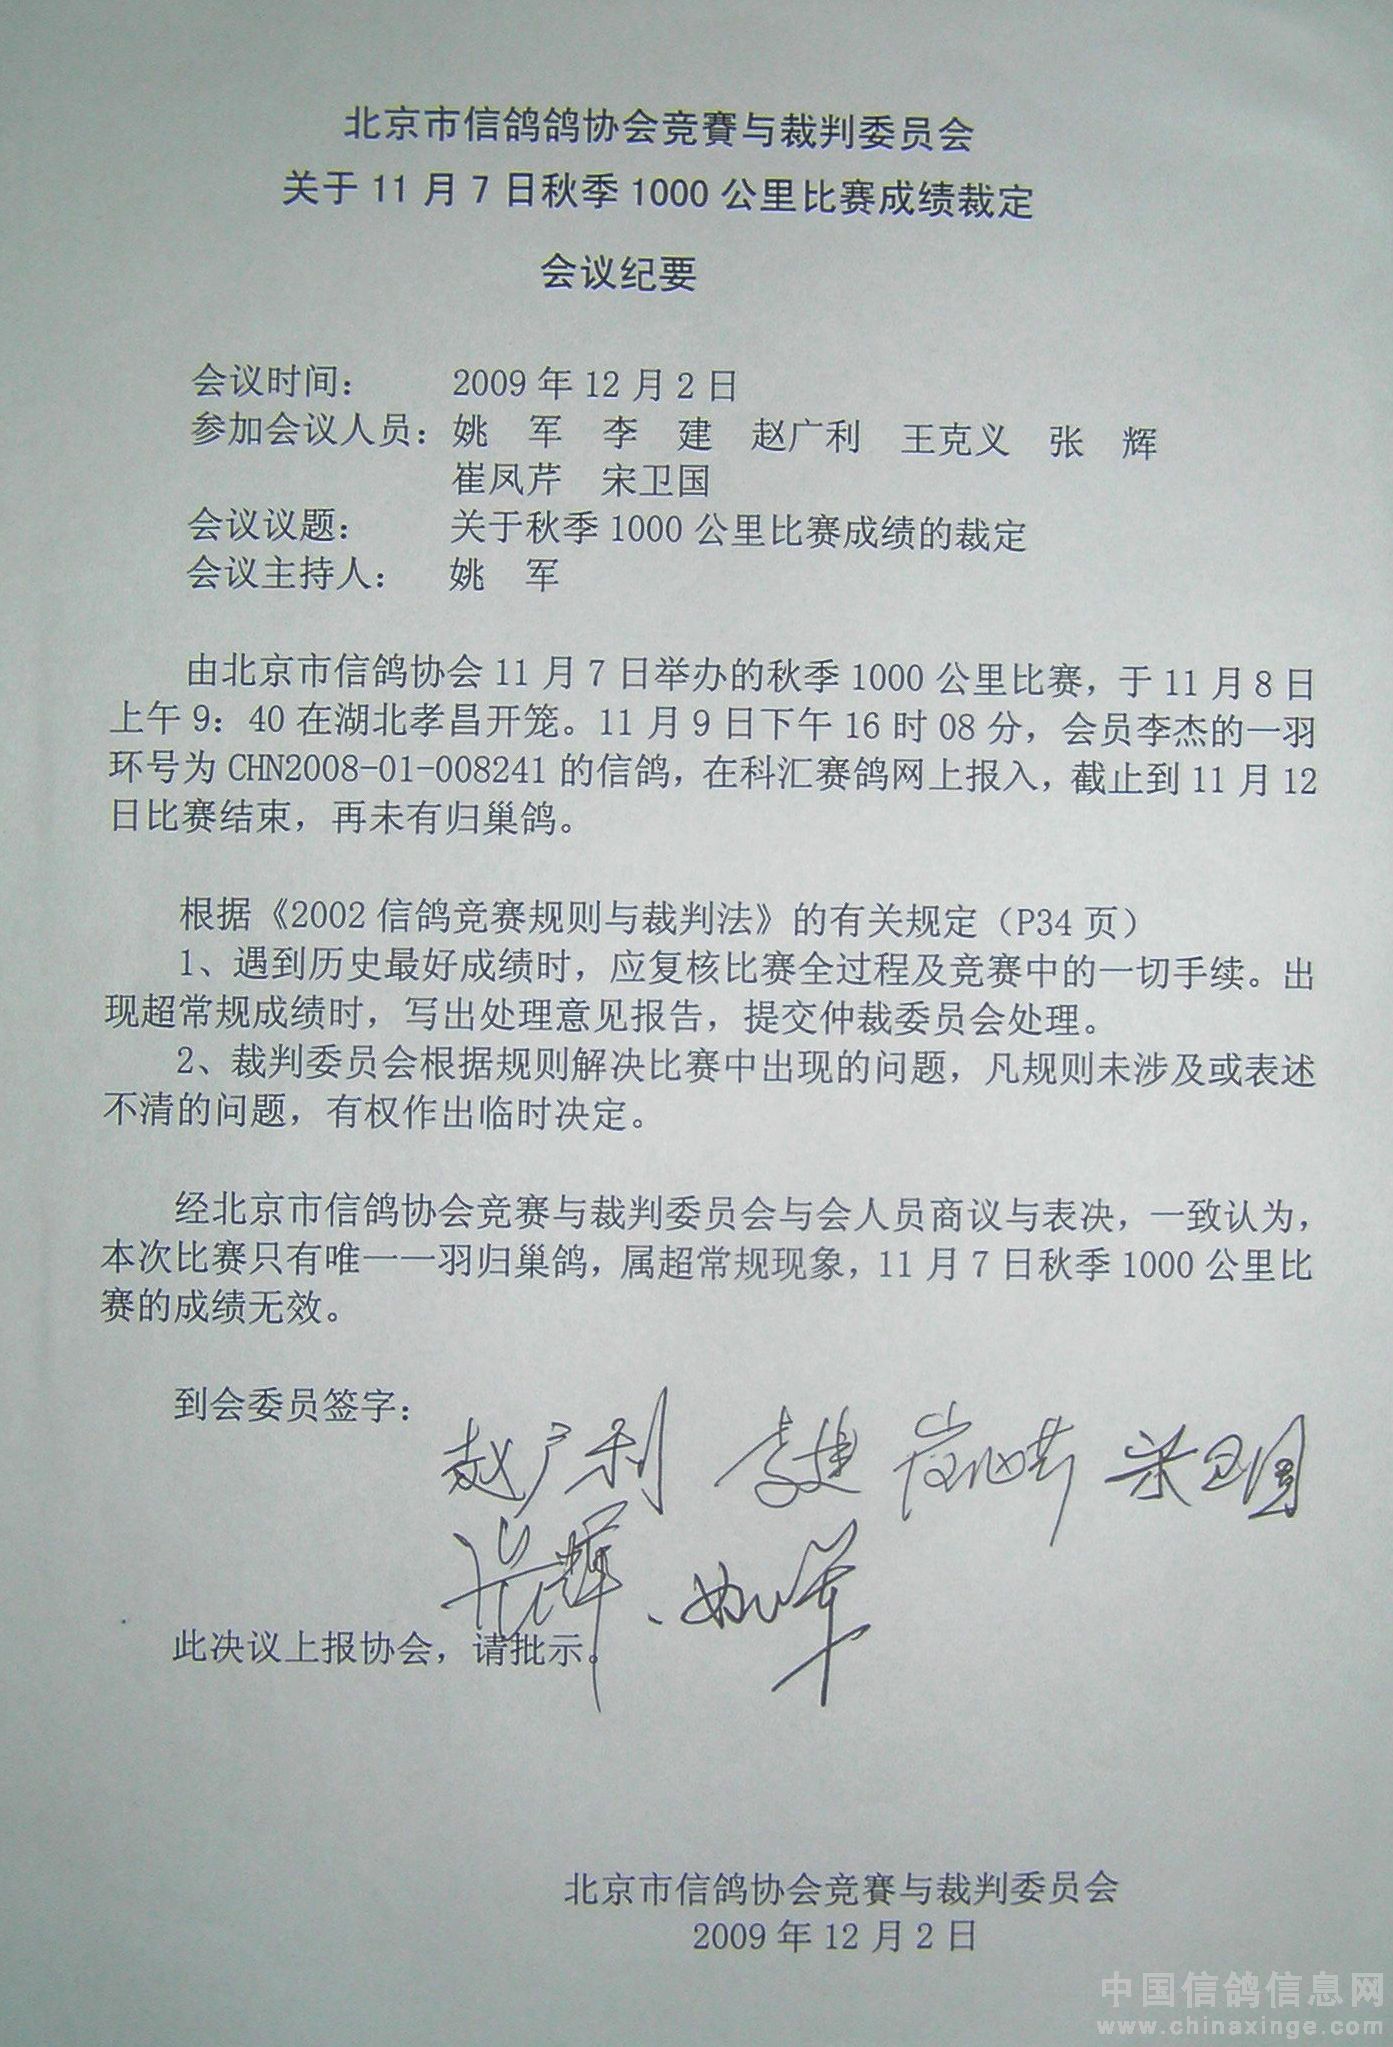 北京市信鸽鸽协会竞賽与裁判委员会
关于 11 月 7 日秋季 1000 公里比赛成绩裁定
会议纪要
会议时间： 2009 年 12 月 2 日
参加会议人员：姚 军 李 建 赵广利 王克义 张 辉
崔凤芹 宋卫国
会议议题： 关于秋季 1000 公里比赛成绩的裁定
会议主持人： 姚 军
由北京市信鸽协会 11 月 7 日举办的秋季 1000 公里比赛，于 11 月 8 日
上午 9：40 在湖北孝昌开笼。11 月 9 日下午 16 时 08 分，会员李杰的一羽
环号为 CHN2008-01-008241 的信鸽，在科汇赛鸽网上报入，截止到 11 月 12
日比赛结束，再未有归巢鸽。
根据《2002 信鸽竞赛规则与裁判法》的有关规定（P34 页）
1、遇到历史最好成绩时，应复核比赛全过程及竞赛中的一切手续。出
现超常规成绩时，写出处理意见报告，提交仲裁委员会处理。
2、裁判委员会根据规则解决比赛中出现的问题，凡规则未涉及或表述
不清的问题，有权作出临时决定。
经北京市信鸽协会竞赛与裁判委员会与会人员商议与表决，一致认为，
本次比赛只有唯一一羽归巢鸽，属超常规现象，11 月 7 日秋季 1000 公里比
赛的成绩无效。
到会委员签字：
赵广利 李建 崔凤芹 宋卫国
张辉、姚军
此决议上报协会，请批示。
北京市信鸽协会竞賽与裁判委员会
2009 年 12 月 2 日
中国信鸽信息网
www.chinaxinge.com